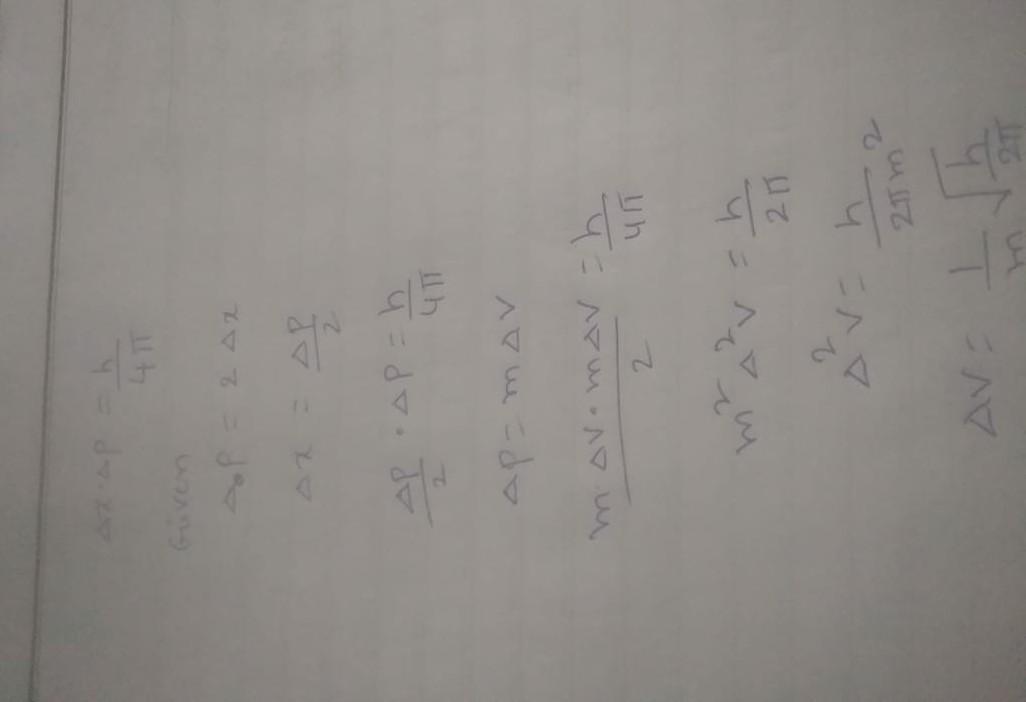 Δx·Δp = h/4π
Given
Δp = 2Δx
Δx = Δp/2
Δp/2 · Δp = h/4π
Δp = mΔv
m·Δv·mΔv/2 = h/4π
m²Δ²v = h/2π
Δ²v = h/2πm²
Δv = 1/m √h/2π